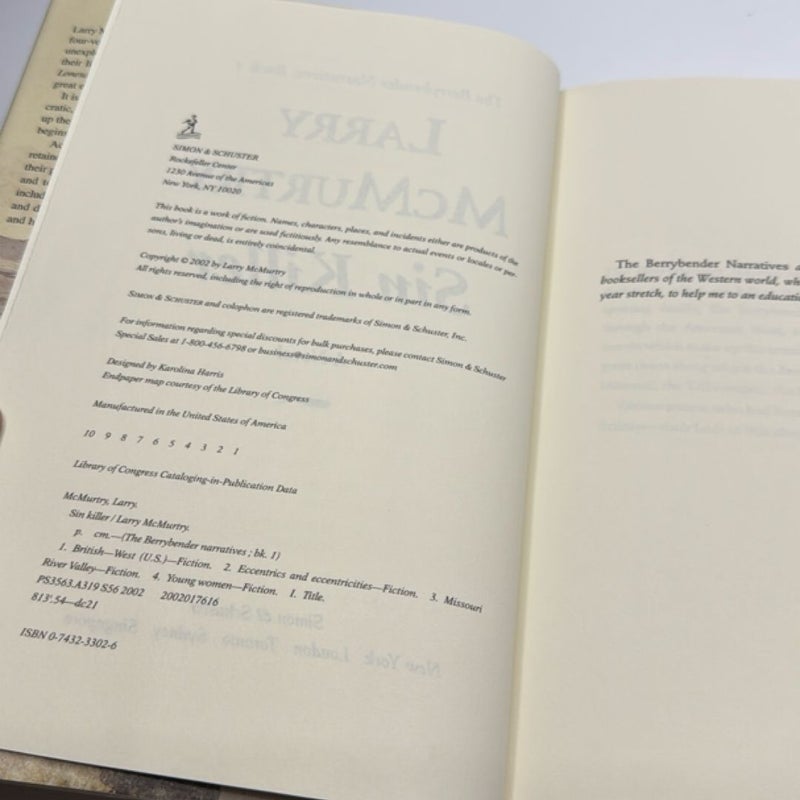 Larry
four-vo
unexpl
their
great e
It is
cratic,
up the
begin
retain
their
and t
includ
and d
and h
SIMON & SCHUSTER
Rockefeller Center
1230 Avenue of the Americas
New York, NY 10020
This book is a work of fiction. Names, characters, places, and incidents either are products of the
author's imagination or are used fictitiously. Any resemblance to actual events or locales or per-
sons, living or dead, is entirely coincidental.
Copyright © 2002 by Larry McMurtry
All rights reserved, including the right of reproduction in whole or in part in any form.
SIMON & SCHUSTER and colophon are registered trademarks of Simon & Schuster, Inc.
For information regarding special discounts for bulk purchases, please contact Simon & Schuster
Special Sales at 1-800-456-6798 or business@simonandschuster.com
Designed by Karolina Harris
Endpaper map courtesy of the Library of Congress
Manufactured in the United States of America
10 9 8 7 6 5 4 3 2 1
Library of Congress Cataloging-in-Publication Data
McMurtry, Larry.
Sin killer / Larry McMurtry.
p. cm.—(The Berrybender narratives ; bk. 1)
1. British—West (U.S.)—Fiction. 2. Eccentrics and eccentricities—Fiction. 3. Missouri
River Valley—Fiction. 4. Young women—Fiction. I. Title.
PS3563.A319 S56 2002 2002017616
813'.54—dc21
ISBN 0-7432-3302-6
The Berrybender Narratives
booksellers of the Western world, wh
year stretch, to help me to an educati